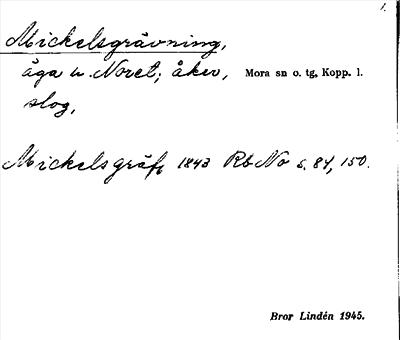 1.
Mickelsgrävning,
äga u. Noret; åker, Mora sn o. tg, Kopp. l.
slog,
Mickelsgräf 1843 Rb No s. 84, 150.
Bror Lindén 1945.